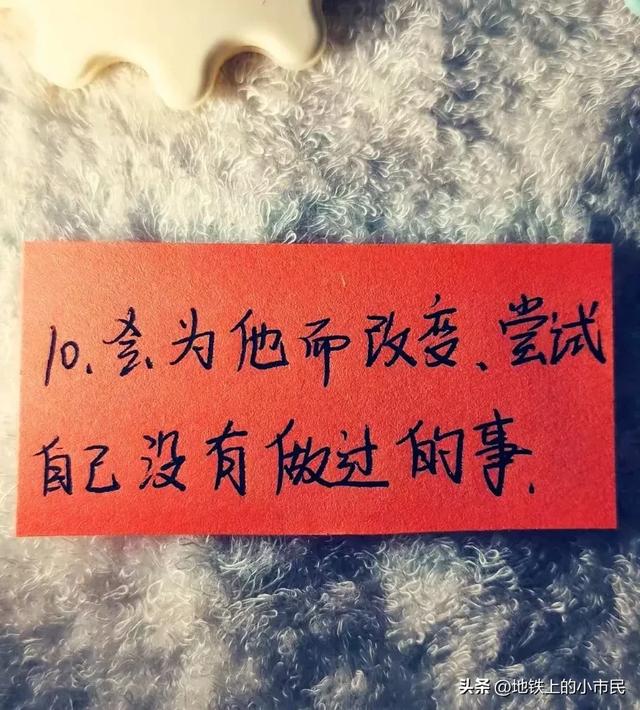 10、会为他而改变、尝试
自己没有做过的事.
头条 @地铁上的小市民